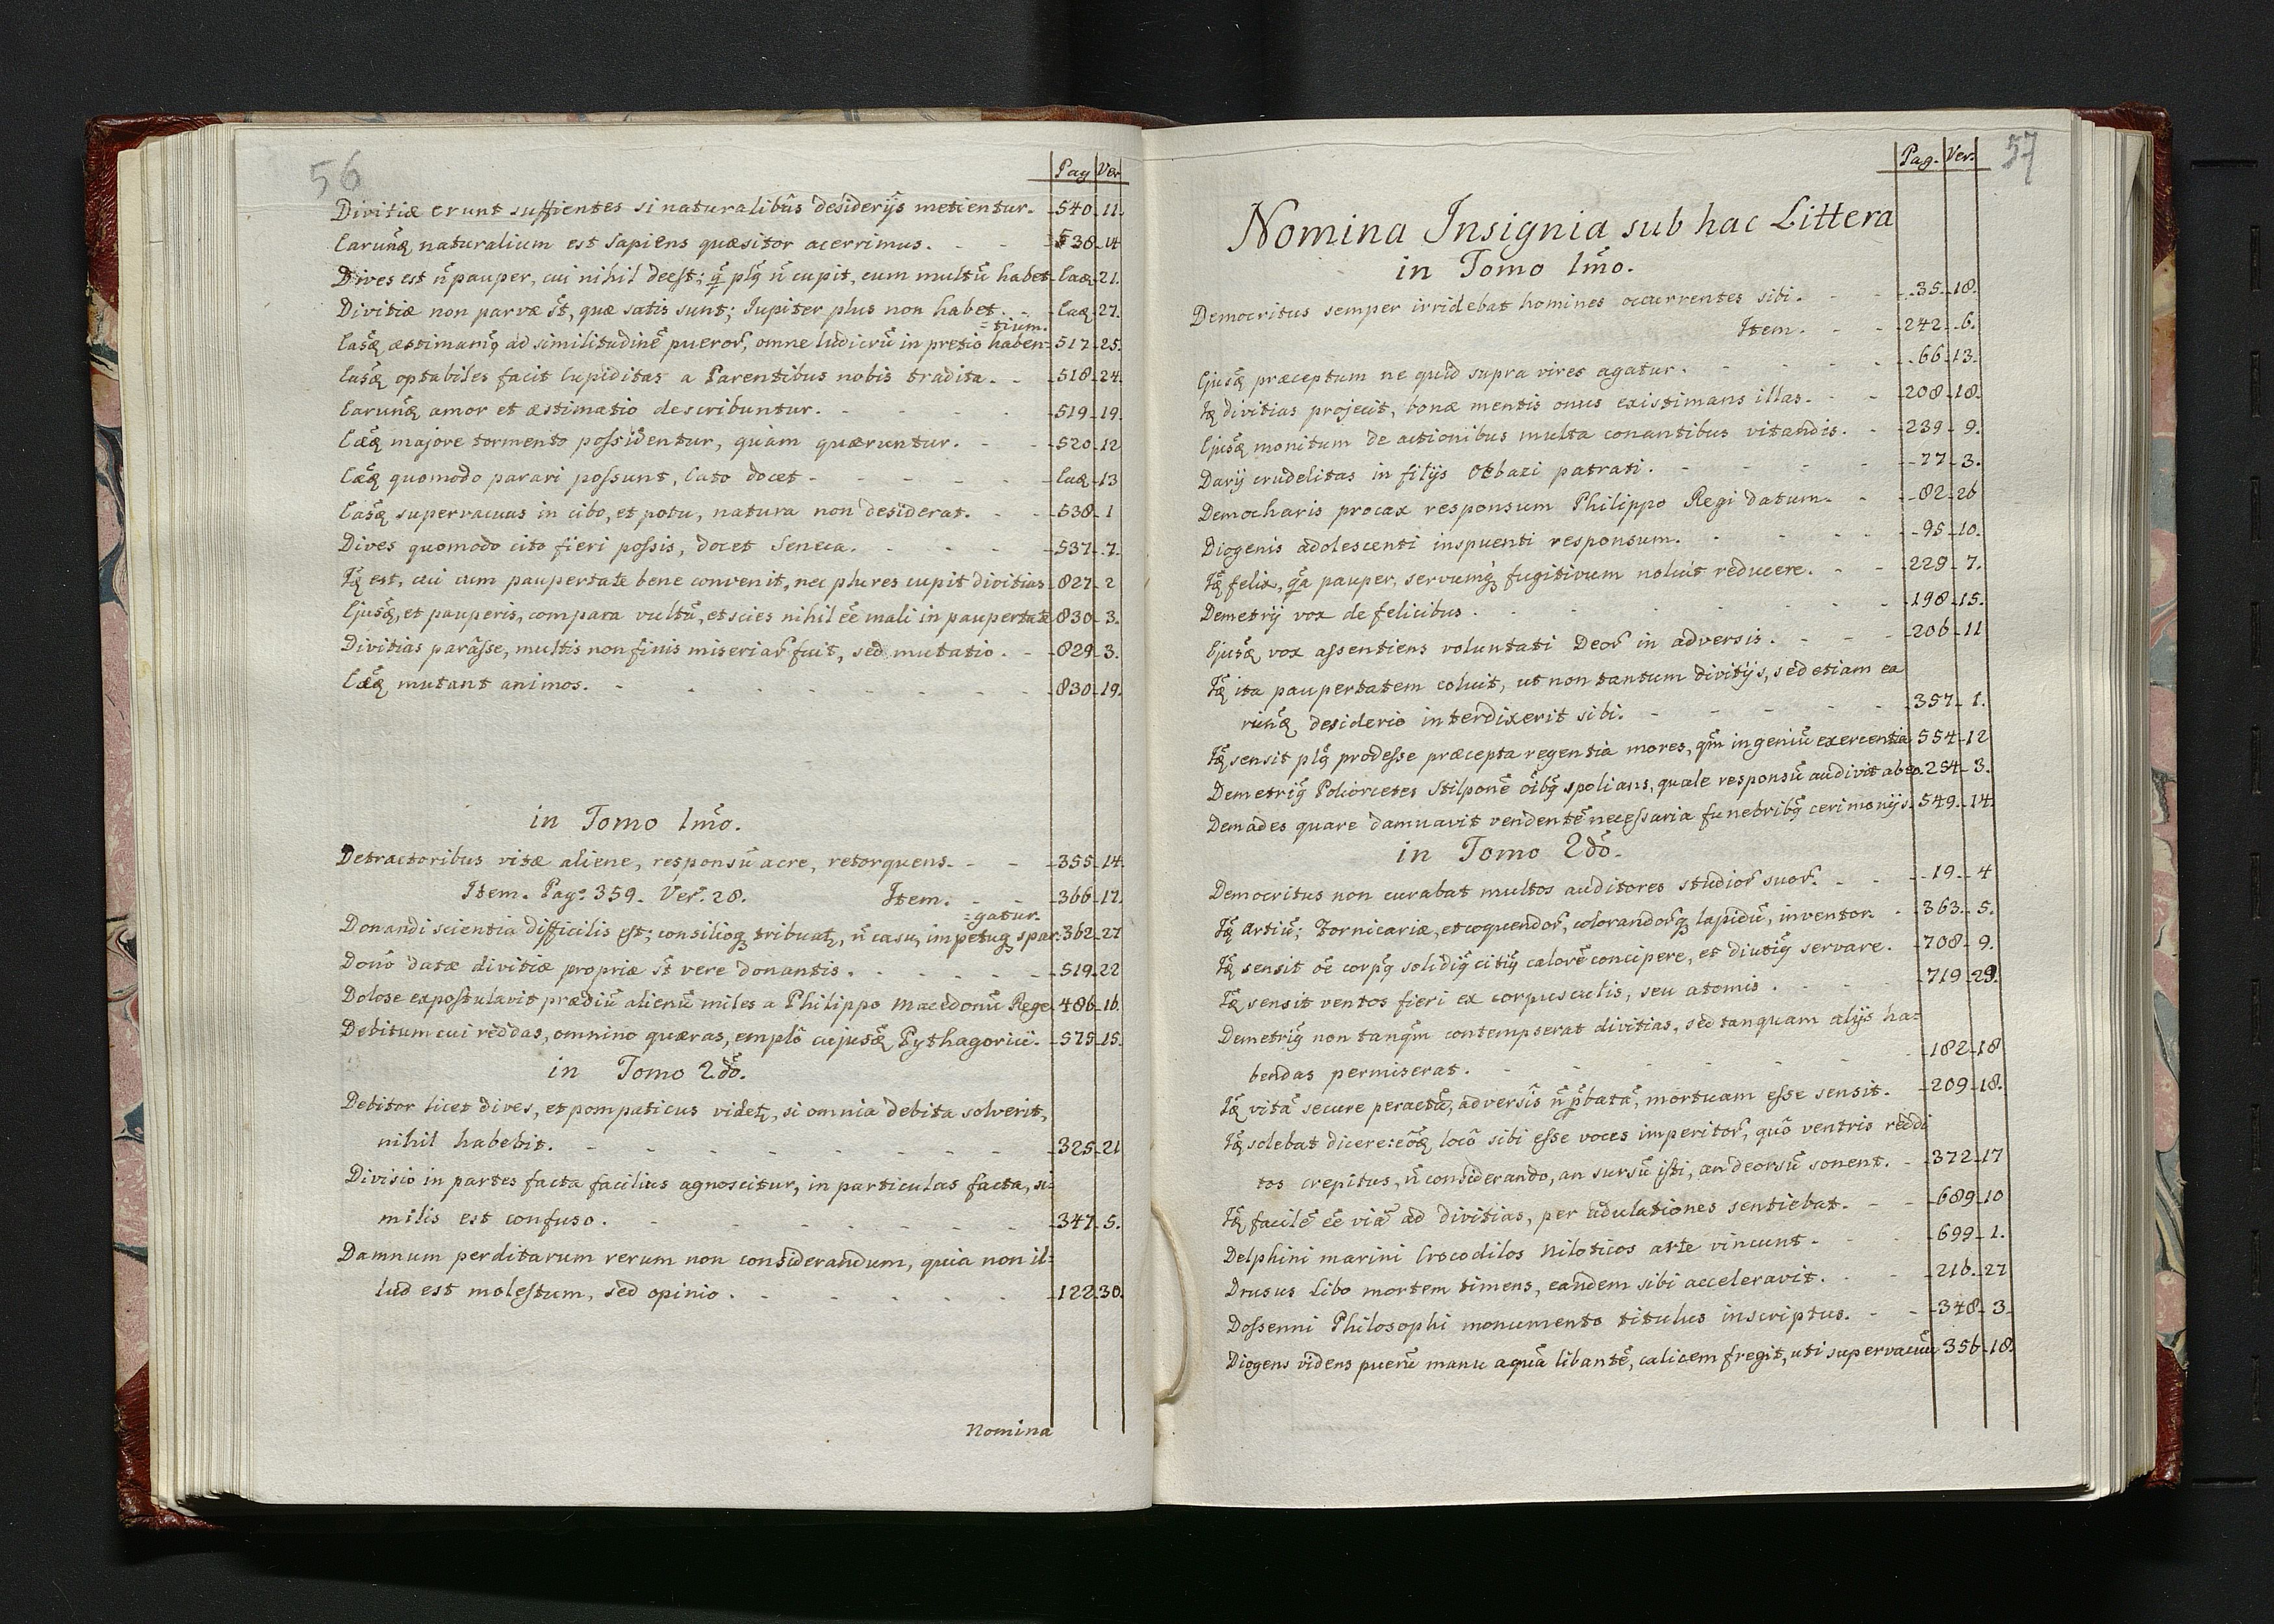 56
Pag Ver
Divitiæ erunt suffientes si naturalibûs desiderijs metientur. 540. 11.
Earunq̃ naturalium est sapiens quæsitor acerrimus. 538. 14
Dives est ñ pauper, cui nihil deest; q̃ plq̃ ñ cupit, cum multũ habet Eaq 21.
Divitiæ non parvæ s̃t, quæ satis sunt; Jupiter plus non habet. Eaq 27.
=tium.
Easq̃ æstimamq̃ ad similitudinẽ pueror̃, omne ludicrũ in pretio haben= 517. 25.
Easq̃ optabiles facit Cupiditas a Parentibus nobis tradita. 518. 24.
Earunq̃ amor et æstimatio describuntur. 519. 19.
Eæq̃ majore tormento possidentur, quàm quæruntur. 520. 12
Eæq̃ quomodo parari possunt, Cato docet Eaq 13
Easq̃ supervacuas in cibo, et potu, natura non desiderat. 538. 1
Dives quomodo cito fieri possis, docet Seneca. 537. 7.
Iq̃ est, cui cum paupertate bene convenit, nec plures cupit divitias 827. 2
Ejusq̃, et pauperis, compara vultũ, et scies nihil eẽ mali in paupertate 830. 3.
Divitias parâsse, multis non finis miseriar̃ fuit, sed mutatio. 829. 3.
Eæq̃ mutant animos. 830. 19.
in Tomo 1mõ.
Detractoribus vitæ aliene, responsũ acre, retorquens. 355. 14.
Item. Pag: 359. Ver. 28. Item. 366. 17.
=gatur.
Donandi scientia difficilis est; consilioq tribuat, ñ casu, impetuq spar: 362. 27
Donõ datæ divitiæ propriæ s̃t vere donantis. 519. 22
Dolose expostulavit prædiũ alienũ miles a Philippo Macedonũ Rege 486. 16.
Debitum cui reddas, omnino quæras, emplõ cujusq̃ Pythagorici. 575. 15.
in Tomo 2dõ.
Debitor licet dives, et pompaticus videt, si omnia debita solverit,
nihil habebit. 325. 21
Divisio in partes facta facilius agnoscitur, in particulas facta, si=
milis est confuso. 347. 5.
Damnum perditarum rerum non considerandum, quia non il=
lud est molestum, sed opinio. 122. 30.
Nomina
57
Pag. Ver.
Nomina Insignia sub hac Littera
in Tomo 1mõ.
Democritus semper irridebat homines occurrentes sibi. 35. 18.
Item. 242. 6.
Ejusq̃ præceptum ne quid supra vires agatur. 66. 13.
Iq̃ divitias projecit, bonæ mentis onus existimans illas. 208. 18.
Ejusq̃ monitum de actionibus multa conantibus vitandis. 239. 9.
Darij crudelitas in filijs Oebazi patrati. 77. 3.
Democharis procax responsum Philippo Regi datum. 82. 26
Diogenis adolescenti inspuenti responsum. 95. 10.
Iq̃ felix, q̃a pauper, servumq̃ fugitivum noluit reducere. 229. 7.
Demetrij vox de felicibus. 198. 15.
Ejusq̃ vox assentiens voluntati Deor̃ in adversis. 206. 11
Iq̃ ita paupertatem coluit, ut non tantum divitijs, sed etiam ea
runq̃ desiderio interdixerit sibi. 357. 1.
Iq̃ sensit plq̃ prodesse præcepta regentia mores, qm̃ ingeniũ exercentia 554. 12
Demetriq̃ Poliorcetes Stilponẽ oĩbq̃ spolians, quale responsũ audivit ab eo. 254. 3.
Demades quare damnavit vendentẽ necessaria funebribq̃ cerimonijs. 549. 14.
in Tomo 2dõ.
Democritus non curabat multos auditores studior̃ suor̃. 19. 4
Iq̃ Artiũ; Fornicariæ, et coquendor̃, colorandor̃q lapidũ, inventor. 363. 5.
Iq̃ sensit oẽ corpq̃ solidiq̃ citiq̃ calorẽ concipere, et diutiq̃ servare. 708. 9.
Iq̃ sensit ventos fieri ex corpusculis, seu atomis. 719. 29.
Demetriq̃ non tanqm̃ contempserat divitias, sed tanquam alijs ha=
bendas permiserat. 182. 18
Iq̃ vitã secure peractã, adversis ñ p̃batã, mortuam esse sensit. 209. 18.
Iq̃ solebat dicere: eõq̃ locõ sibi esse voces imperitor̃, quõ ventris reddi
tos crepitus, ñ considerando, an sursũ isti, an deorsũ sonent. 372. 17
Iq̃ facilẽ eẽ viã ad divitias, per adulationes sentiebat. 689. 10
Delphini marini Crocodilos Niloticos arte vincunt. 699. 1.
Drusus Libo mortem timens, eandem sibi acceleravit. 216. 27
Dossenni Philosophi monumento titulus inscriptus. 348. 3.
Diogens videns puerũ manu aquã libantẽ, calicem fregit, uti supervacuũ 356. 18.